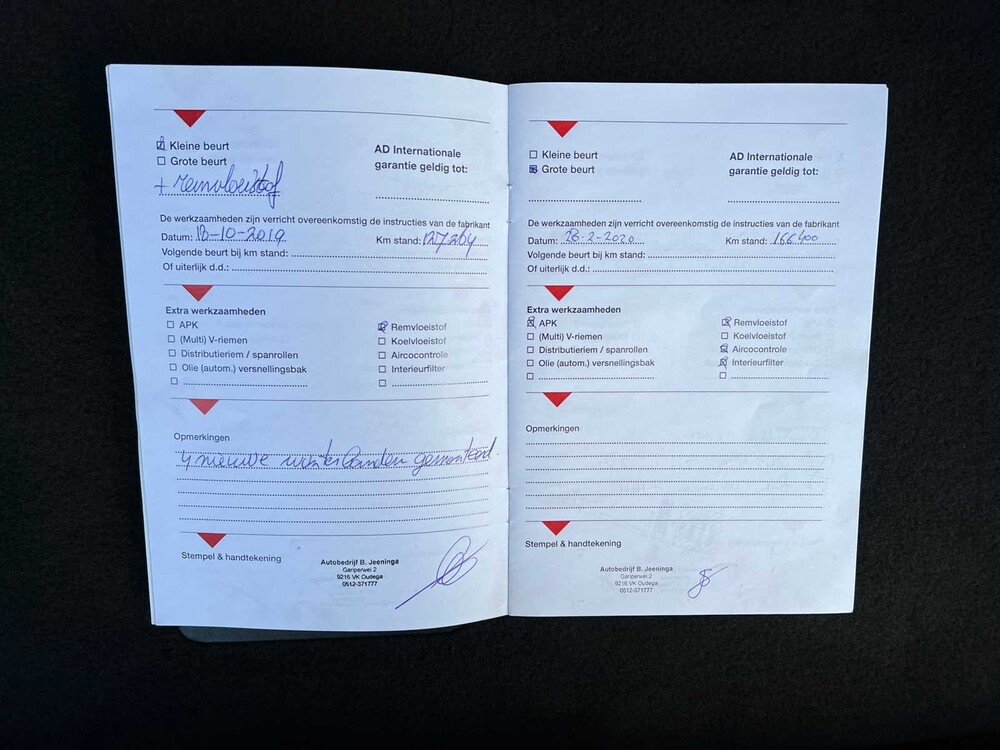 Kleine beurt
Grote beurt
+ remvloeistof
AD Internationale
garantie geldig tot:
De werkzaamheden zijn verricht overeenkomstig de instructies van de fabrikant
Datum: 18-10-2019 Km stand: 127264
Volgende beurt bij km stand:
Of uiterlijk d.d.:
Extra werkzaamheden
APK
(Multi) V-riemen
Distributieriem / spanrollen
Olie (autom.) versnellingsbak
Remvloeistof
Koelvloeistof
Aircocontrole
Interieurfilter
Opmerkingen
4 nieuwe winterbanden gemonteerd.
Stempel & handtekening
Autobedrijf B. Jeeninga
Gariperwei 2
9216 VK Oudega
0512-371777
Kleine beurt
Grote beurt
AD Internationale
garantie geldig tot:
De werkzaamheden zijn verricht overeenkomstig de instructies van de fabrikant
Datum: 28-2-2020 Km stand: 166400
Volgende beurt bij km stand:
Of uiterlijk d.d.:
Extra werkzaamheden
APK
(Multi) V-riemen
Distributieriem / spanrollen
Olie (autom.) versnellingsbak
Remvloeistof
Koelvloeistof
Aircocontrole
Interieurfilter
Opmerkingen
Stempel & handtekening
Autobedrijf B. Jeeninga
Gariperwei 2
9216 VK Oudega
0512-371777